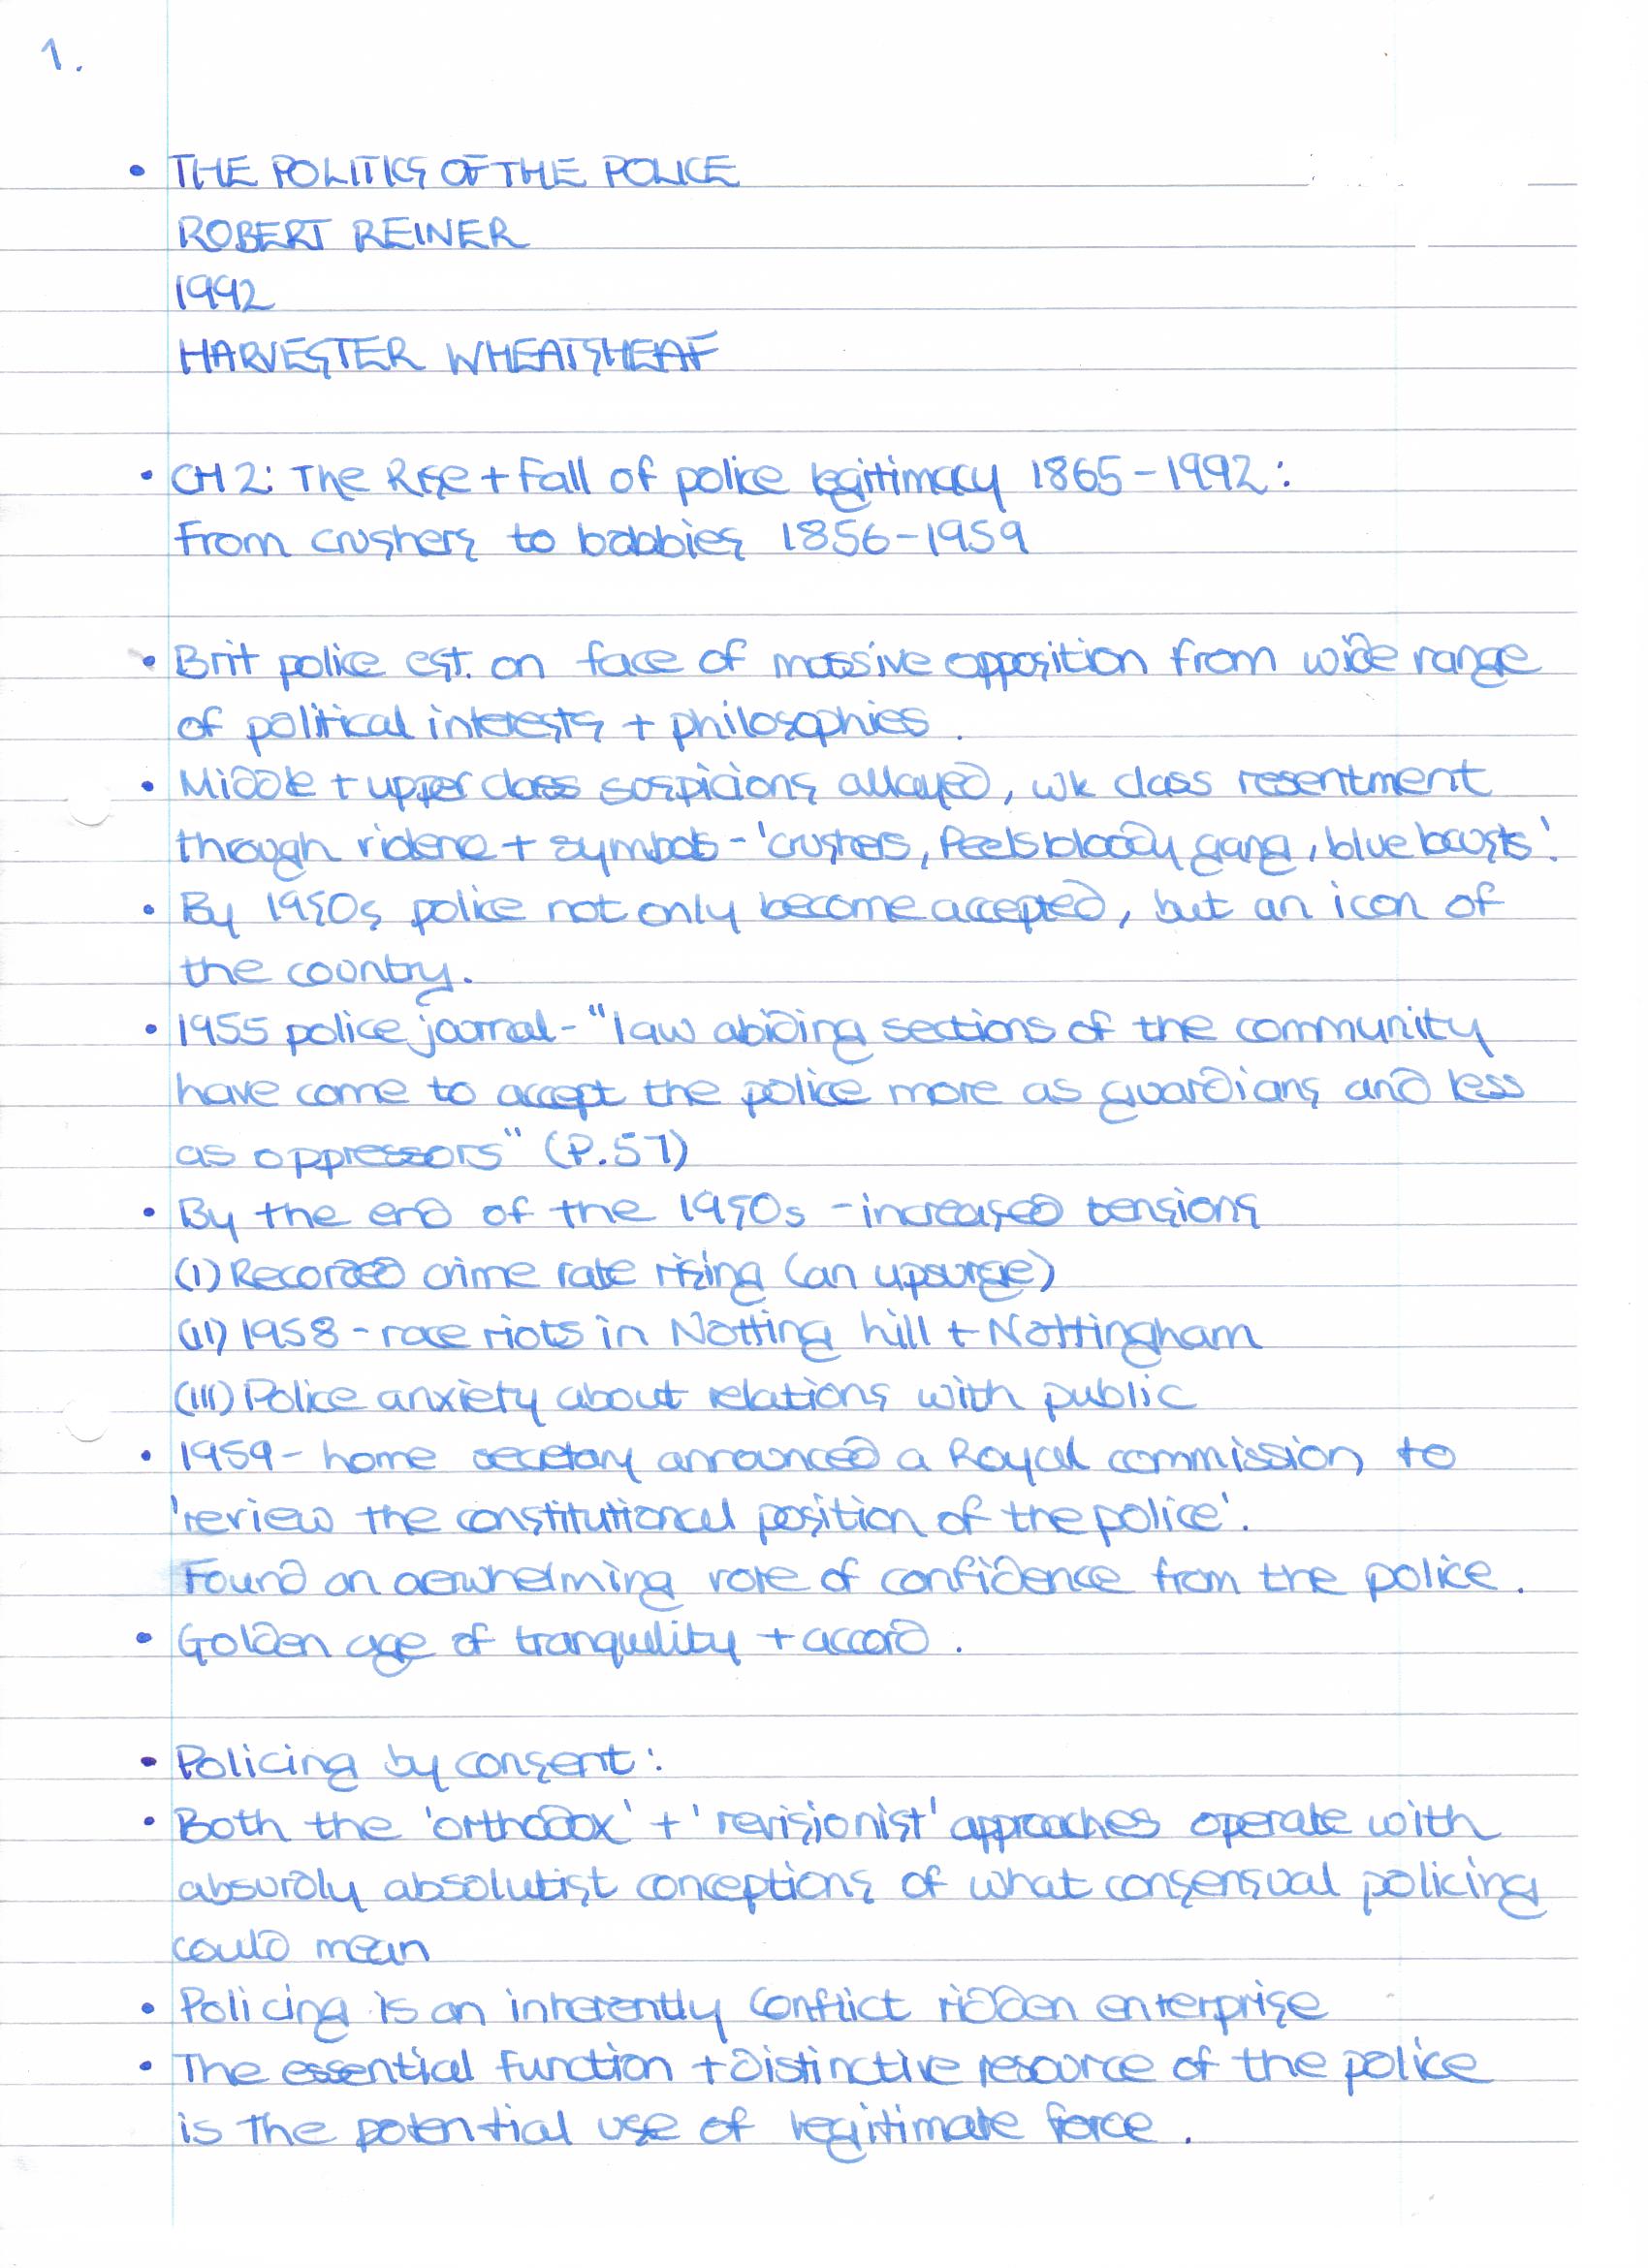 1.
• THE POLITICS OF THE POLICE
ROBERT REINER
1992
HARVESTER WHEATSHEAF
• CH 2: The Rise + Fall of police legitimacy 1865-1992:
From crushers to bobbies 1856-1959
• Brit police est. on face of massive opposition from wide range
of political interests + philosophies.
• Middle + upper class suspicions allayed, wk class resentment
through violence + symbols - 'crushers, Peels bloody gang, blue locusts'.
• By 1950s police not only become accepted, but an icon of
the country.
• 1955 police journal - "law abiding sections of the community
have come to accept the police more as guardians and less
as oppressors" (P.57)
• By the end of the 1950s - increased tensions
(I) Recorded crime rate rising (an upsurge)
(II) 1958 - race riots in Notting hill + Nottingham
(III) Police anxiety about relations with public
• 1959 - home secretary announced a Royal commission to
'review the constitutional position of the police'.
Found an overwhelming vote of confidence from the police.
• Golden age of tranquility + accord.
• Policing by consent:
• Both the 'orthodox' + 'revisionist' approaches operate with
absurdly absolutist conceptions of what consensual policing
could mean
• Policing is an inherently conflict ridden enterprise
• The essential function + distinctive resource of the police
is the potential use of legitimate force.